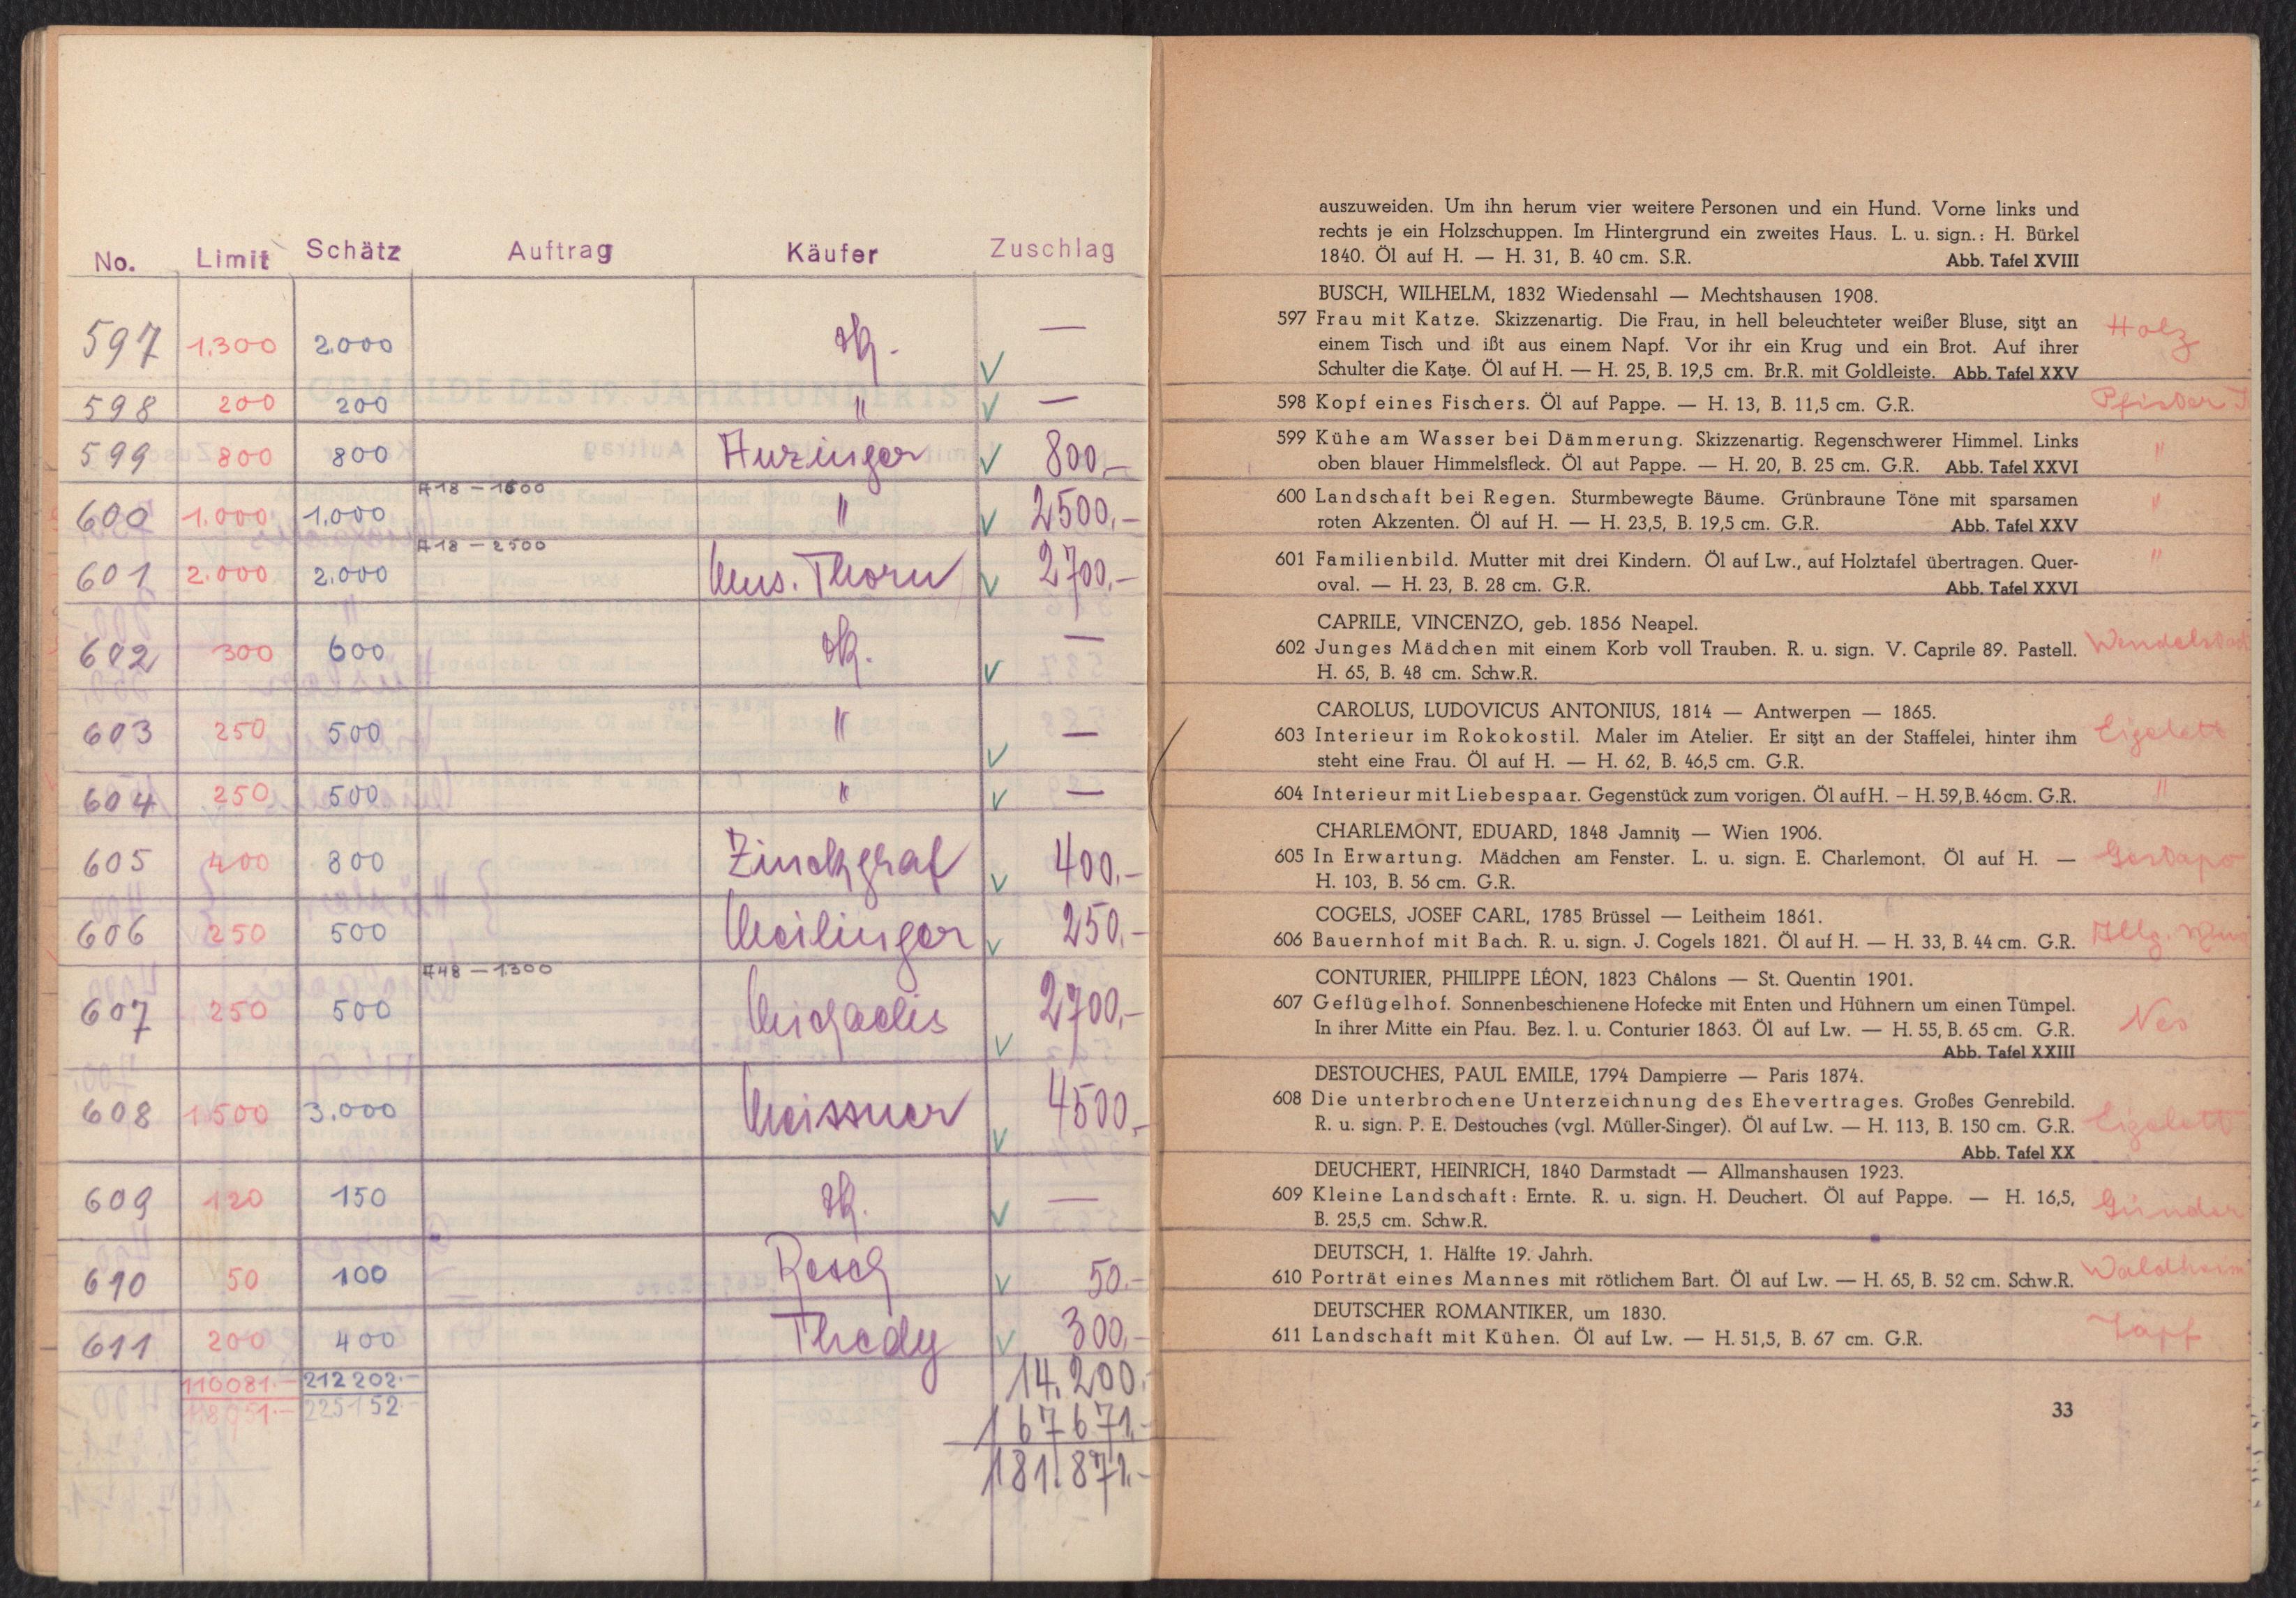 No. Limit Schätz Auftrag Käufer Zuschlag
597 1.300 2.000 —
598 200 200 " —
599 800 800 800,-
600 1.000 1.000 A18 – 1600 " 2500,-
601 2.000 2.000 A18 – 2500 Mus. Thorn 2700,-
602 300 600 —
603 250 500 " —
604 250 500 " —
605 400 800 Zinckgraf 400,-
606 250 500 Meilinger 250,-
607 250 500 A48 – 1300 Michaelis 2700,-
608 1500 3.000 Meissner 4500,-
609 120 150 —
610 50 100 Resch 50.-
611 200 400 Thedy 300,-
110081.- 212202.- 14.200.
118051.- 225152.- 167671.-
181.871.-
auszuweiden. Um ihn herum vier weitere Personen und ein Hund. Vorne links und
rechts je ein Holzschuppen. Im Hintergrund ein zweites Haus. L. u. sign.: H. Bürkel
1840. Öl auf H. — H. 31, B. 40 cm. S.R. Abb. Tafel XVIII
BUSCH, WILHELM, 1832 Wiedensahl — Mechtshausen 1908.
597 Frau mit Katze. Skizzenartig. Die Frau, in hell beleuchteter weißer Bluse, sitzt an Holz
einem Tisch und ißt aus einem Napf. Vor ihr ein Krug und ein Brot. Auf ihrer
Schulter die Katze. Öl auf H. — H. 25, B. 19,5 cm. Br.R. mit Goldleiste. Abb. Tafel XXV
598 Kopf eines Fischers. Öl auf Pappe. — H. 13, B. 11,5 cm. G.R. Pfister
599 Kühe am Wasser bei Dämmerung. Skizzenartig. Regenschwerer Himmel. Links "
oben blauer Himmelsfleck. Öl auf Pappe. — H. 20, B. 25 cm. G.R. Abb. Tafel XXVI
600 Landschaft bei Regen. Sturmbewegte Bäume. Grünbraune Töne mit sparsamen "
roten Akzenten. Öl auf H. — H. 23,5, B. 19,5 cm. G.R. Abb. Tafel XXV
601 Familienbild. Mutter mit drei Kindern. Öl auf Lw., auf Holztafel übertragen. Quer- "
oval. — H. 23, B. 28 cm. G.R. Abb. Tafel XXVI
CAPRILE, VINCENZO, geb. 1856 Neapel.
602 Junges Mädchen mit einem Korb voll Trauben. R. u. sign. V. Caprile 89. Pastell.
H. 65, B. 48 cm. Schw.R.
CAROLUS, LUDOVICUS ANTONIUS, 1814 — Antwerpen — 1865.
603 Interieur im Rokokostil. Maler im Atelier. Er sitzt an der Staffelei, hinter ihm
steht eine Frau. Öl auf H. — H. 62, B. 46,5 cm. G.R.
604 Interieur mit Liebespaar. Gegenstück zum vorigen. Öl auf H. – H. 59, B. 46 cm. G.R. "
CHARLEMONT, EDUARD, 1848 Jamnitz — Wien 1906.
605 In Erwartung. Mädchen am Fenster. L. u. sign. E. Charlemont. Öl auf H. — Gestapo
H. 103, B. 56 cm. G.R.
COGELS, JOSEF CARL, 1785 Brüssel — Leitheim 1861.
606 Bauernhof mit Bach. R. u. sign. J. Cogels 1821. Öl auf H. — H. 33, B. 44 cm. G.R. Allg.
CONTURIER, PHILIPPE LÉON, 1823 Châlons — St. Quentin 1901.
607 Geflügelhof. Sonnenbeschienene Hofecke mit Enten und Hühnern um einen Tümpel.
In ihrer Mitte ein Pfau. Bez. l. u. Conturier 1863. Öl auf Lw. — H. 55, B. 65 cm. G.R. Nes
Abb. Tafel XXIII
DESTOUCHES, PAUL EMILE, 1794 Dampierre — Paris 1874.
608 Die unterbrochene Unterzeichnung des Ehevertrages. Großes Genrebild.
R. u. sign. P. E. Destouches (vgl. Müller-Singer). Öl auf Lw. — H. 113, B. 150 cm. G.R.
Abb. Tafel XX
DEUCHERT, HEINRICH, 1840 Darmstadt — Allmanshausen 1923.
609 Kleine Landschaft: Ernte. R. u. sign. H. Deuchert. Öl auf Pappe. — H. 16,5, Günder
B. 25,5 cm. Schw.R.
DEUTSCH, 1. Hälfte 19. Jahrh.
610 Porträt eines Mannes mit rötlichem Bart. Öl auf Lw. — H. 65, B. 52 cm. Schw.R. Waldheim
DEUTSCHER ROMANTIKER, um 1830.
611 Landschaft mit Kühen. Öl auf Lw. — H. 51,5, B. 67 cm. G.R.
33